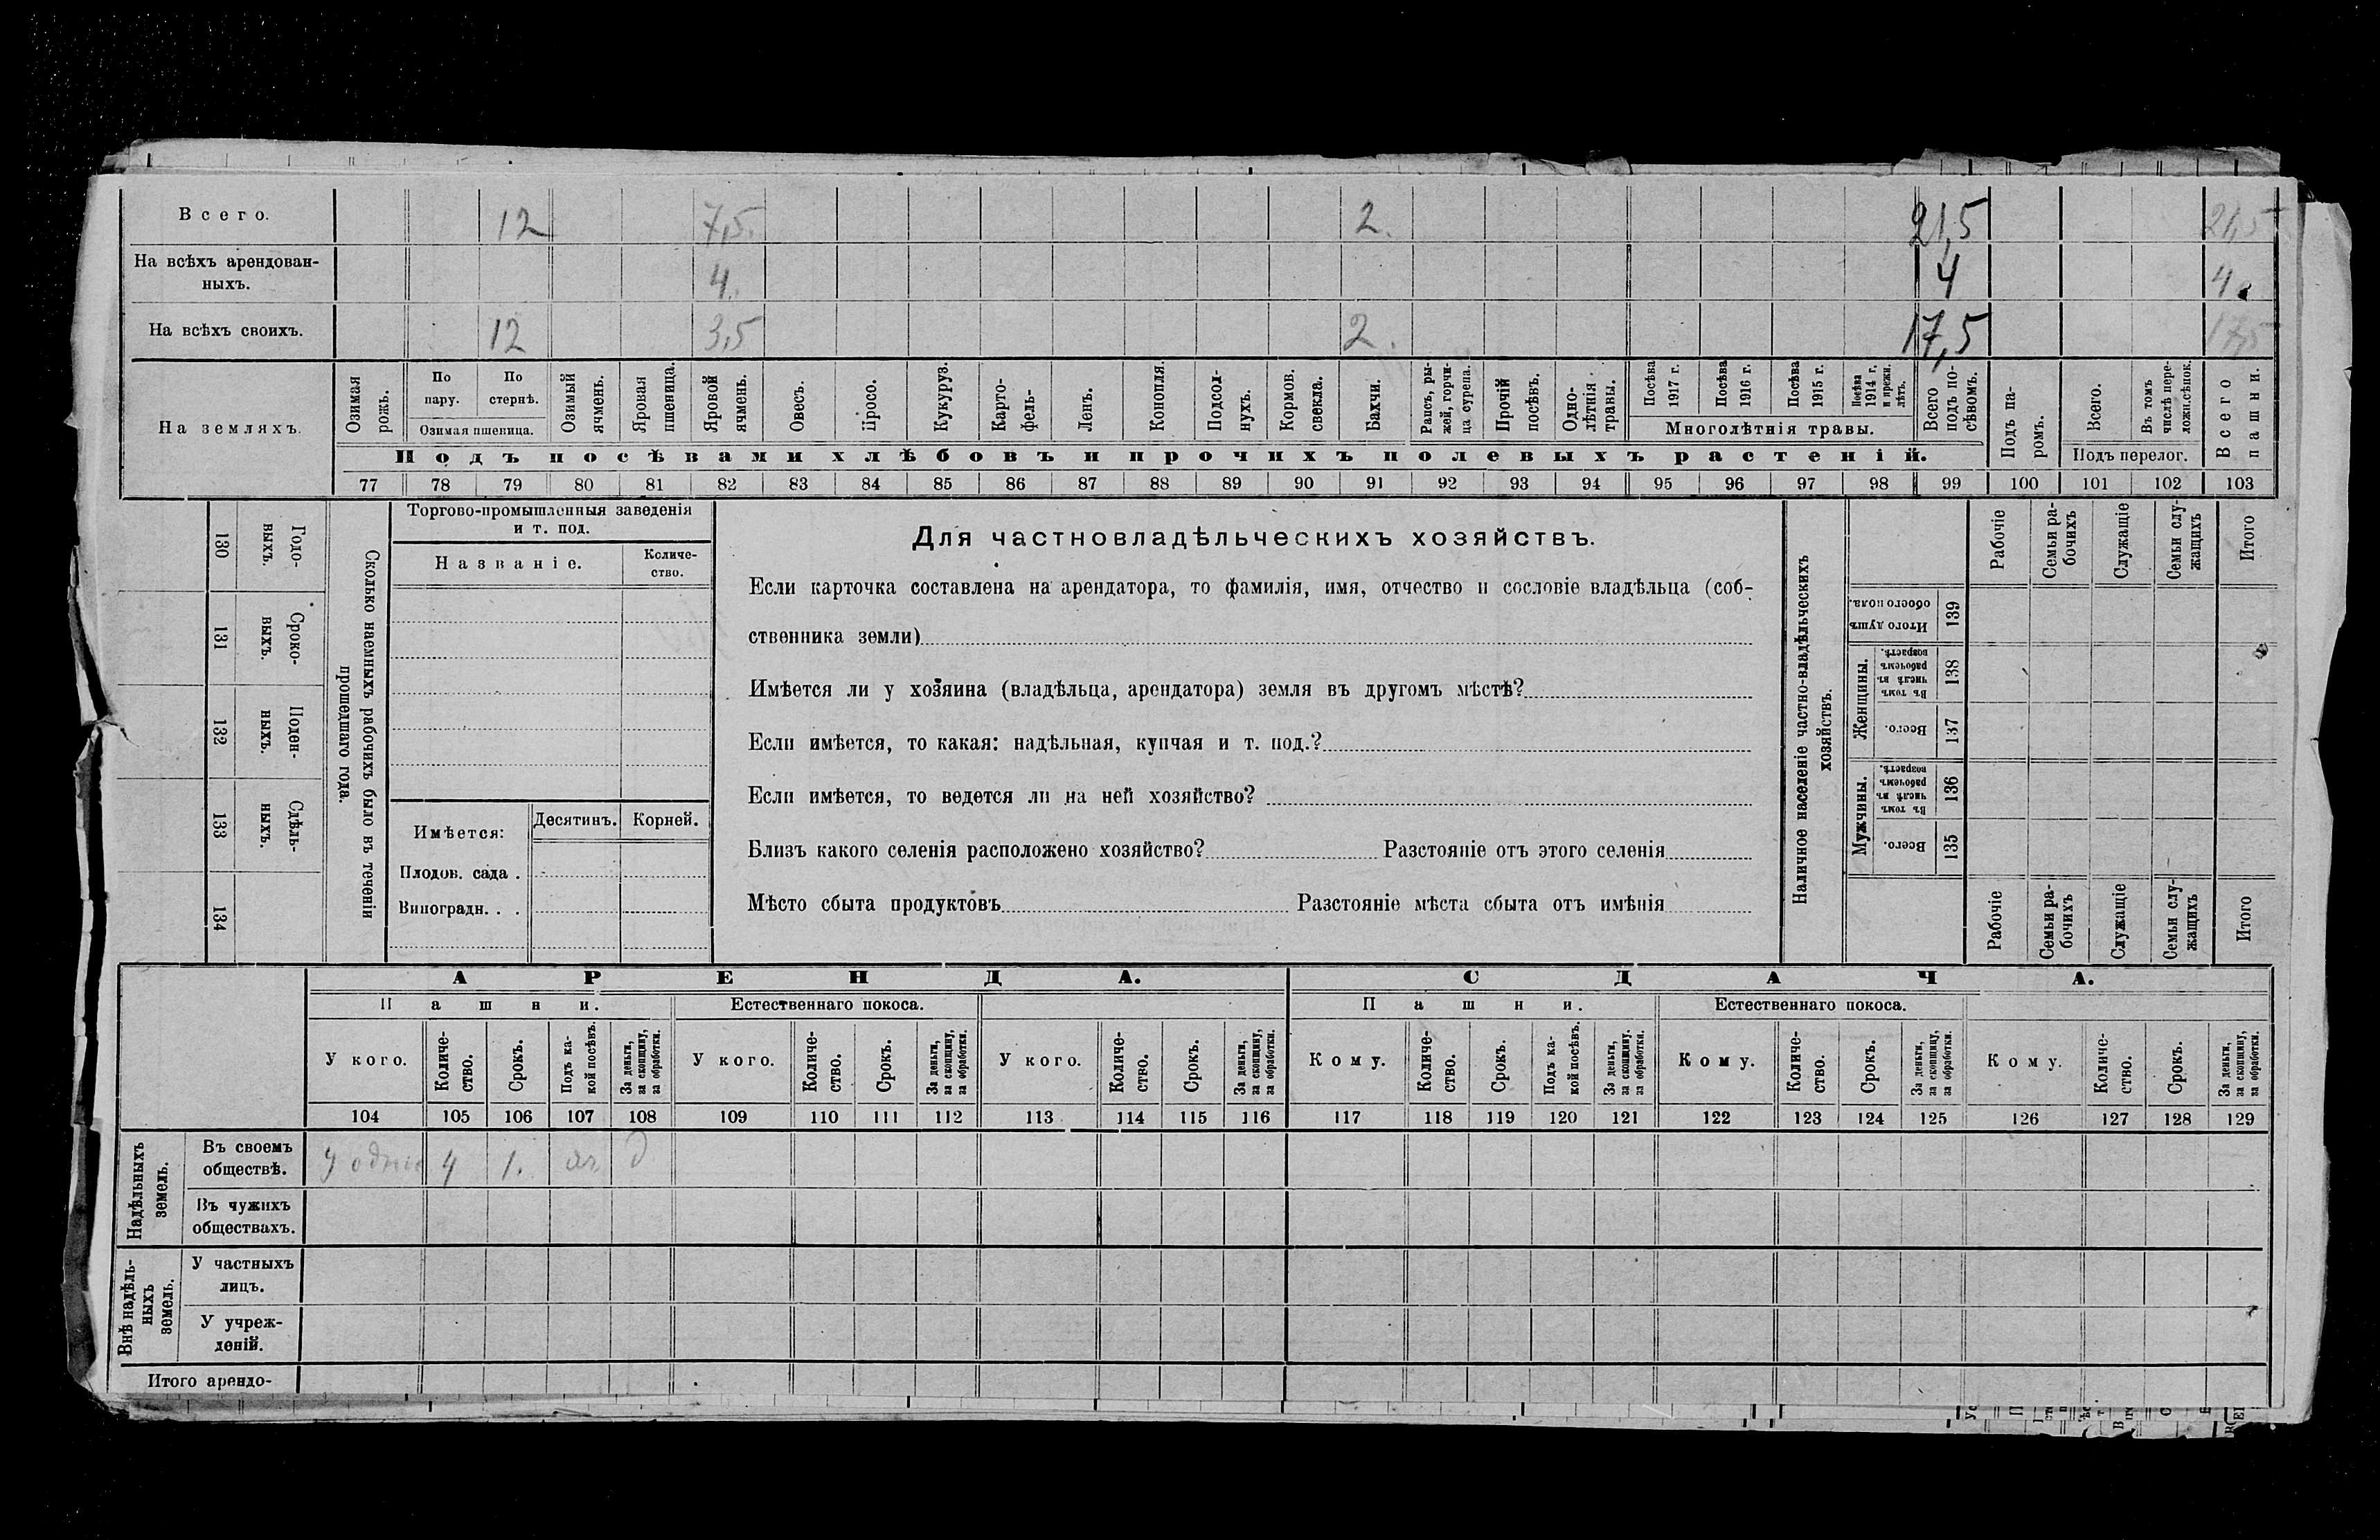 Всего. 12 7,5. 2. 21,5 21,5
На всѣхъ арендован-
ныхъ. 4. 4 4
На всѣхъ своихъ. 12 3,5 2. 17,5 17,5
На земляхъ.
Озимая
рожь.
По
пару.
По
стернѣ.
Озимая пшеница.
Озимый
ячмень.
Яровая
пшеница.
Яровой
ячмень.
Овесъ.
Просо.
Кукуруз.
Карто-
фель-
Ленъ.
Конопля.
Подсол-
нухъ.
Кормов.
свекла.
Бахчи.
Рапсъ, ры-
жей, горчи-
ца сурепа.
Прочій
посѣвъ.
Одно-
лѣтнія
травы.
Посѣва
1917 г.
Посѣва
1916 г.
Посѣва
1915 г.
Посѣва
1914 г.
и прежн.
лѣтъ.
Многолѣтнія травы.
Всего
подъ по-
сѣвомъ.
Подъ посѣвами хлѣбовъ и прочихъ полевыхъ растеній.
Подъ па-
ромъ.
Всего.
Въ томъ
числѣ пере-
ложн.сѣнок.
Подъ перелог.
Всего
пашни.
77 78 79 80 81 82 83 84 85 86 87 88 89 90 91 92 93 94 95 96 97 98 99 100 101 102 103
Годо-
выхъ.
130
Сроко-
выхъ.
131
Поден-
ныхъ.
132
Сдѣль-
ныхъ.
133
134
Сколько наемныхъ рабочихъ было въ теченіи
прошедшаго года.
Торгово-промышленныя заведенія
и т. под.
Названіе.
Количе-
ство.
Имѣется: Десятинъ. Корней.
Плодов. сада .
Виноградн. . .
Для частновладѣльческихъ хозяйствъ.
Если карточка составлена на арендатора, то фамилія, имя, отчество и сословіе владѣльца (соб-
ственника земли)
Имѣется ли у хозяина (владѣльца, арендатора) земля въ другомъ мѣстѣ?
Если имѣется, то какая: надѣльная, купчая и т. под.?
Если имѣется, то ведется ли на ней хозяйство?
Близъ какого селенія расположено хозяйство? Разстояніе отъ этого селенія
Мѣсто сбыта продуктовъ Разстояніе мѣста сбыта отъ имѣнія
Наличное населеніе частно-владѣльческихъ
хозяйствъ.
Рабочіе
Семьи ра-
бочихъ
Служащіе
Семьи слу-
жащихъ
Итого
Итого душъ
обоего пола.
139
Женщины.
Въ томъ
числѣ въ
рабочемъ
возрастѣ.
138
Всего.
137
Мужчины.
Въ томъ
числѣ въ
рабочемъ
возрастѣ.
136
Всего.
135
Рабочіе
Семьи ра-
бочихъ
Служащіе
Семьи слу-
жащихъ
Итого
АРЕНДА. СДАЧА.
Пашни. Естественнаго покоса. Пашни. Естественнаго покоса.
У кого.
Количе-
ство.
Срокъ.
Подъ ка-
кой посѣвъ.
За деньги,
за скопщину,
за обработки.
У кого.
Количе-
ство.
Срокъ.
За деньги,
за скопщину,
за обработки.
У кого.
Количе-
ство.
Срокъ.
За деньги,
за скопщину,
за обработки.
Кому.
Количе-
ство.
Срокъ.
Подъ ка-
кой посѣвъ.
За деньги,
за скопщину.
за обработки.
Кому.
Количе-
ство.
Срокъ.
За деньги,
за скопщину,
за обработки.
Кому.
Количе-
ство.
Срокъ.
За деньги,
за скопщину,
за обработки.
104 105 106 107 108 109 110 111 112 113 114 115 116 117 118 119 120 121 122 123 124 125 126 127 128 129
Надѣльныхъ
земель.
Въ своемъ
обществѣ. 4 1. д
Въ чужихъ
обществахъ.
Внѣ надѣль-
ныхъ
земель.
У частныхъ
лицъ.
У учреж-
деній.
Итого арендо-